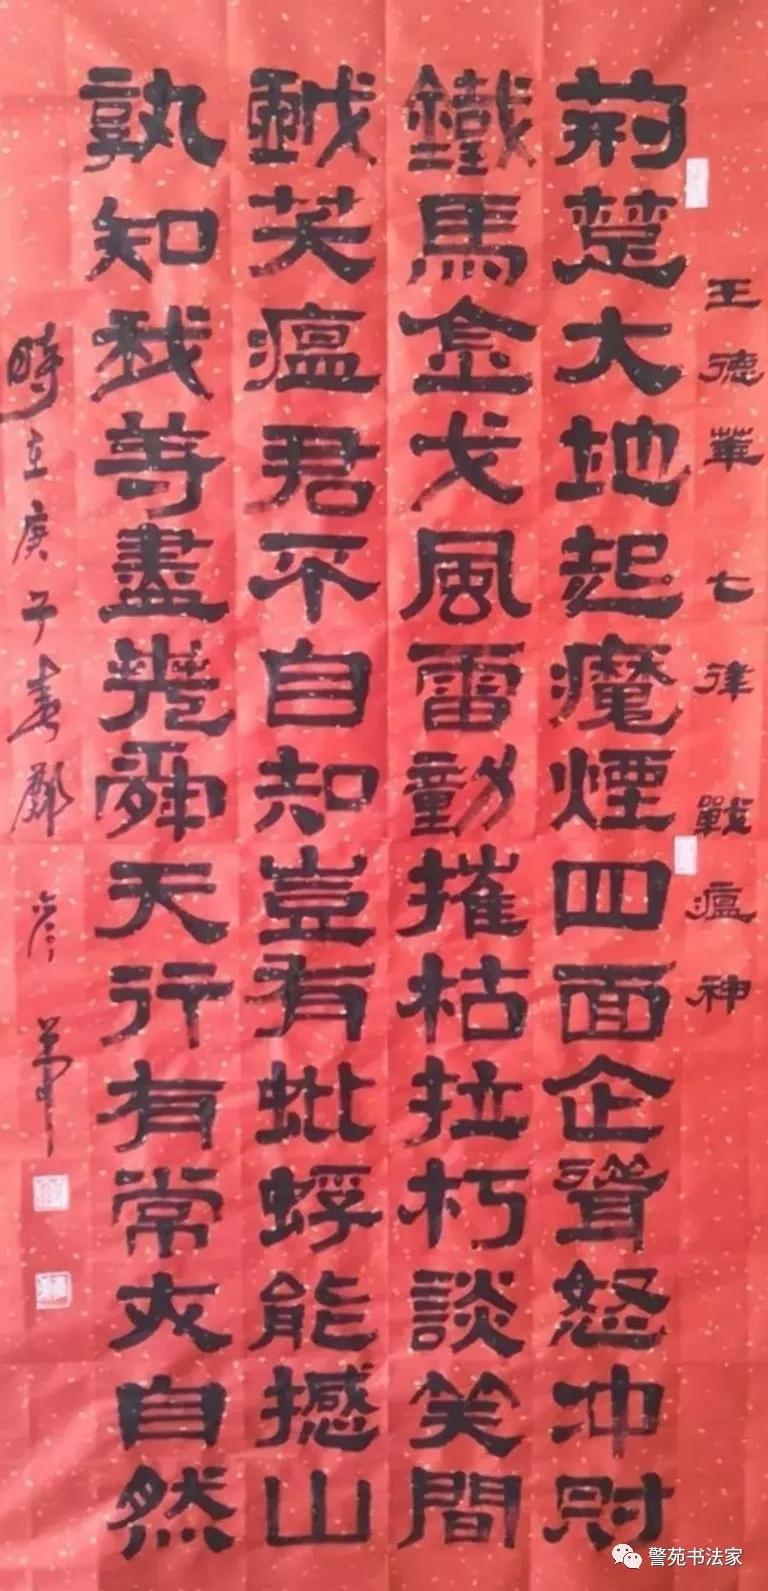 王德華 七律 戰瘟神
荊楚大地起魔煙四面企聳怒冲冠
鐵馬金戈風雷動摧枯拉朽談笑間
戲笑瘟君不自知豈有蚍蜉能撼山
孰知我等盡堯舜天行有常亦自然
時在庚子春鄭彦
警苑书法家